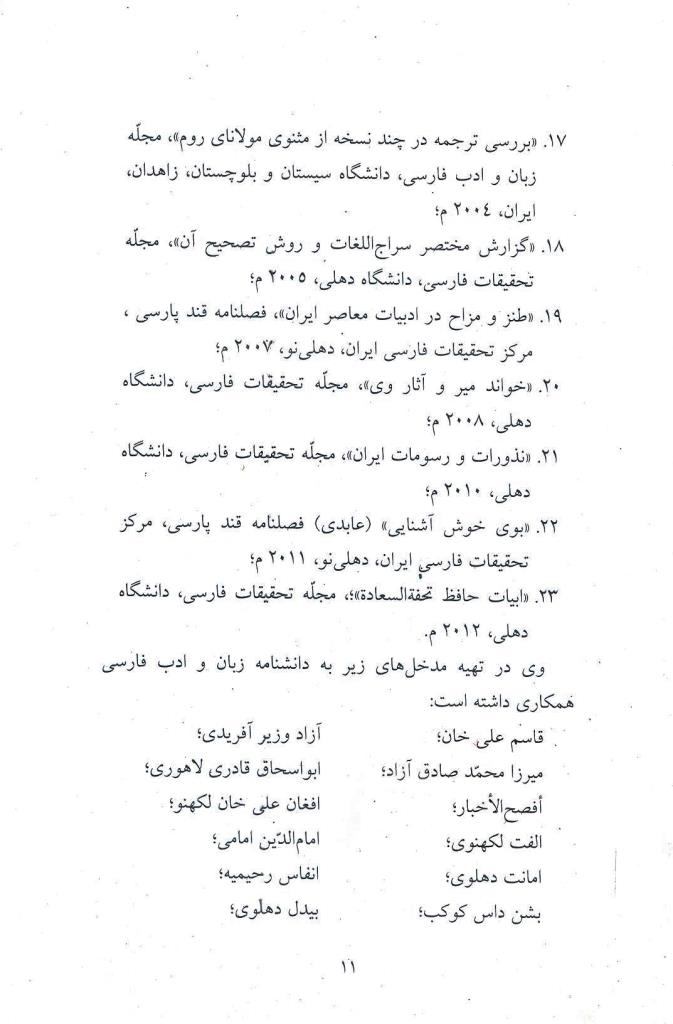 ۱۷. «بررسی ترجمه در چند نسخه از مثنوی مولانای روم»، مجلّه
زبان و ادب فارسی، دانشگاه سیستان و بلوچستان، زاهدان،
ایران، ۲۰۰٤ م؛
۱۸. «گزارش مختصر سراج‌اللغات و روش تصحیح آن»، مجلّه
تحقیقات فارسی، دانشگاه دهلی، ۲۰۰۵ م؛
۱۹. «طنز و مزاح در ادبیات معاصر ایران»، فصلنامه قند پارسی ،
مرکز تحقیقات فارسی ایران، دهلی‌نو، ۲۰۰۷ م؛
۲۰. «خواند میر و آثار وی»، مجلّه تحقیقات فارسی، دانشگاه
دهلی، ۲۰۰۸ م؛
۲۱. «نذورات و رسومات ایران»، مجلّه تحقیقات فارسی، دانشگاه
دهلی، ۲۰۱۰ م؛
۲۲. «بوی خوش آشنایی» (عابدی) فصلنامه قند پارسی، مرکز
تحقیقات فارسی ایران، دهلی‌نو، ۲۰۱۱ م؛
۲۳. «ابیات حافظ تحفةالسعادة»؛، مجلّه تحقیقات فارسی، دانشگاه
دهلی، ۲۰۱۲ م.
وی در تهیه مدخل‌های زیر به دانشنامه زبان و ادب فارسی
همکاری داشته است:
قاسم علی خان؛ آزاد وزیر آفریدی؛
میرزا محمّد صادق آزاد؛ ابواسحاق قادری لاهوری؛
أفصح‌الأخبار؛ افغان علی خان لکهنو؛
الفت لکهنوی؛ امام‌الدّین امامی؛
امانت دهلوی؛ انفاس رحیمیه؛
بشن داس کوکب؛ بیدل دهلوی؛
۱۱